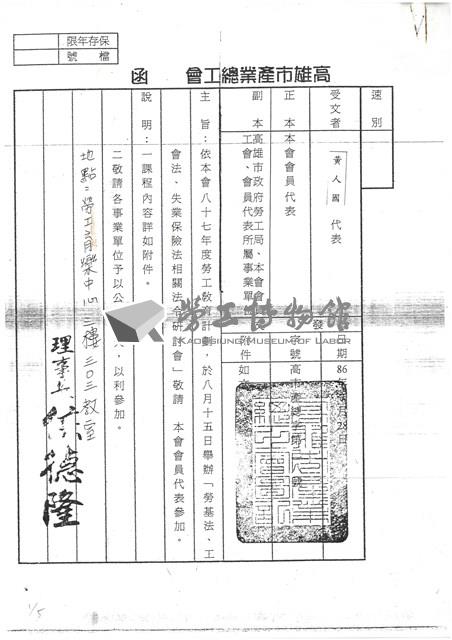 保存年限
檔號
高雄市產業總工會　函
速別
受文者　黃人國　代表
正本　本會會員代表
副本　高雄市政府勞工局、本會會
工會、會員代表所屬事業單位
發
日期 86年 月28日
字號 高市產總字第 號
附件 如
主旨：依本會八十七年度勞工教育計劃，於八月十五日舉辦「勞基法、工
會法、失業保險法相關法令研討會」敬請　本會會員代表參加。
說明：一課程內容詳如附件。
二敬請各事業單位予以公 ，以利參加。
地點：勞工育樂中心三樓三〇三教室
理事長 德隆
勞工博物館
KAOHSIUNG MUSEUM OF LABOR
1/5